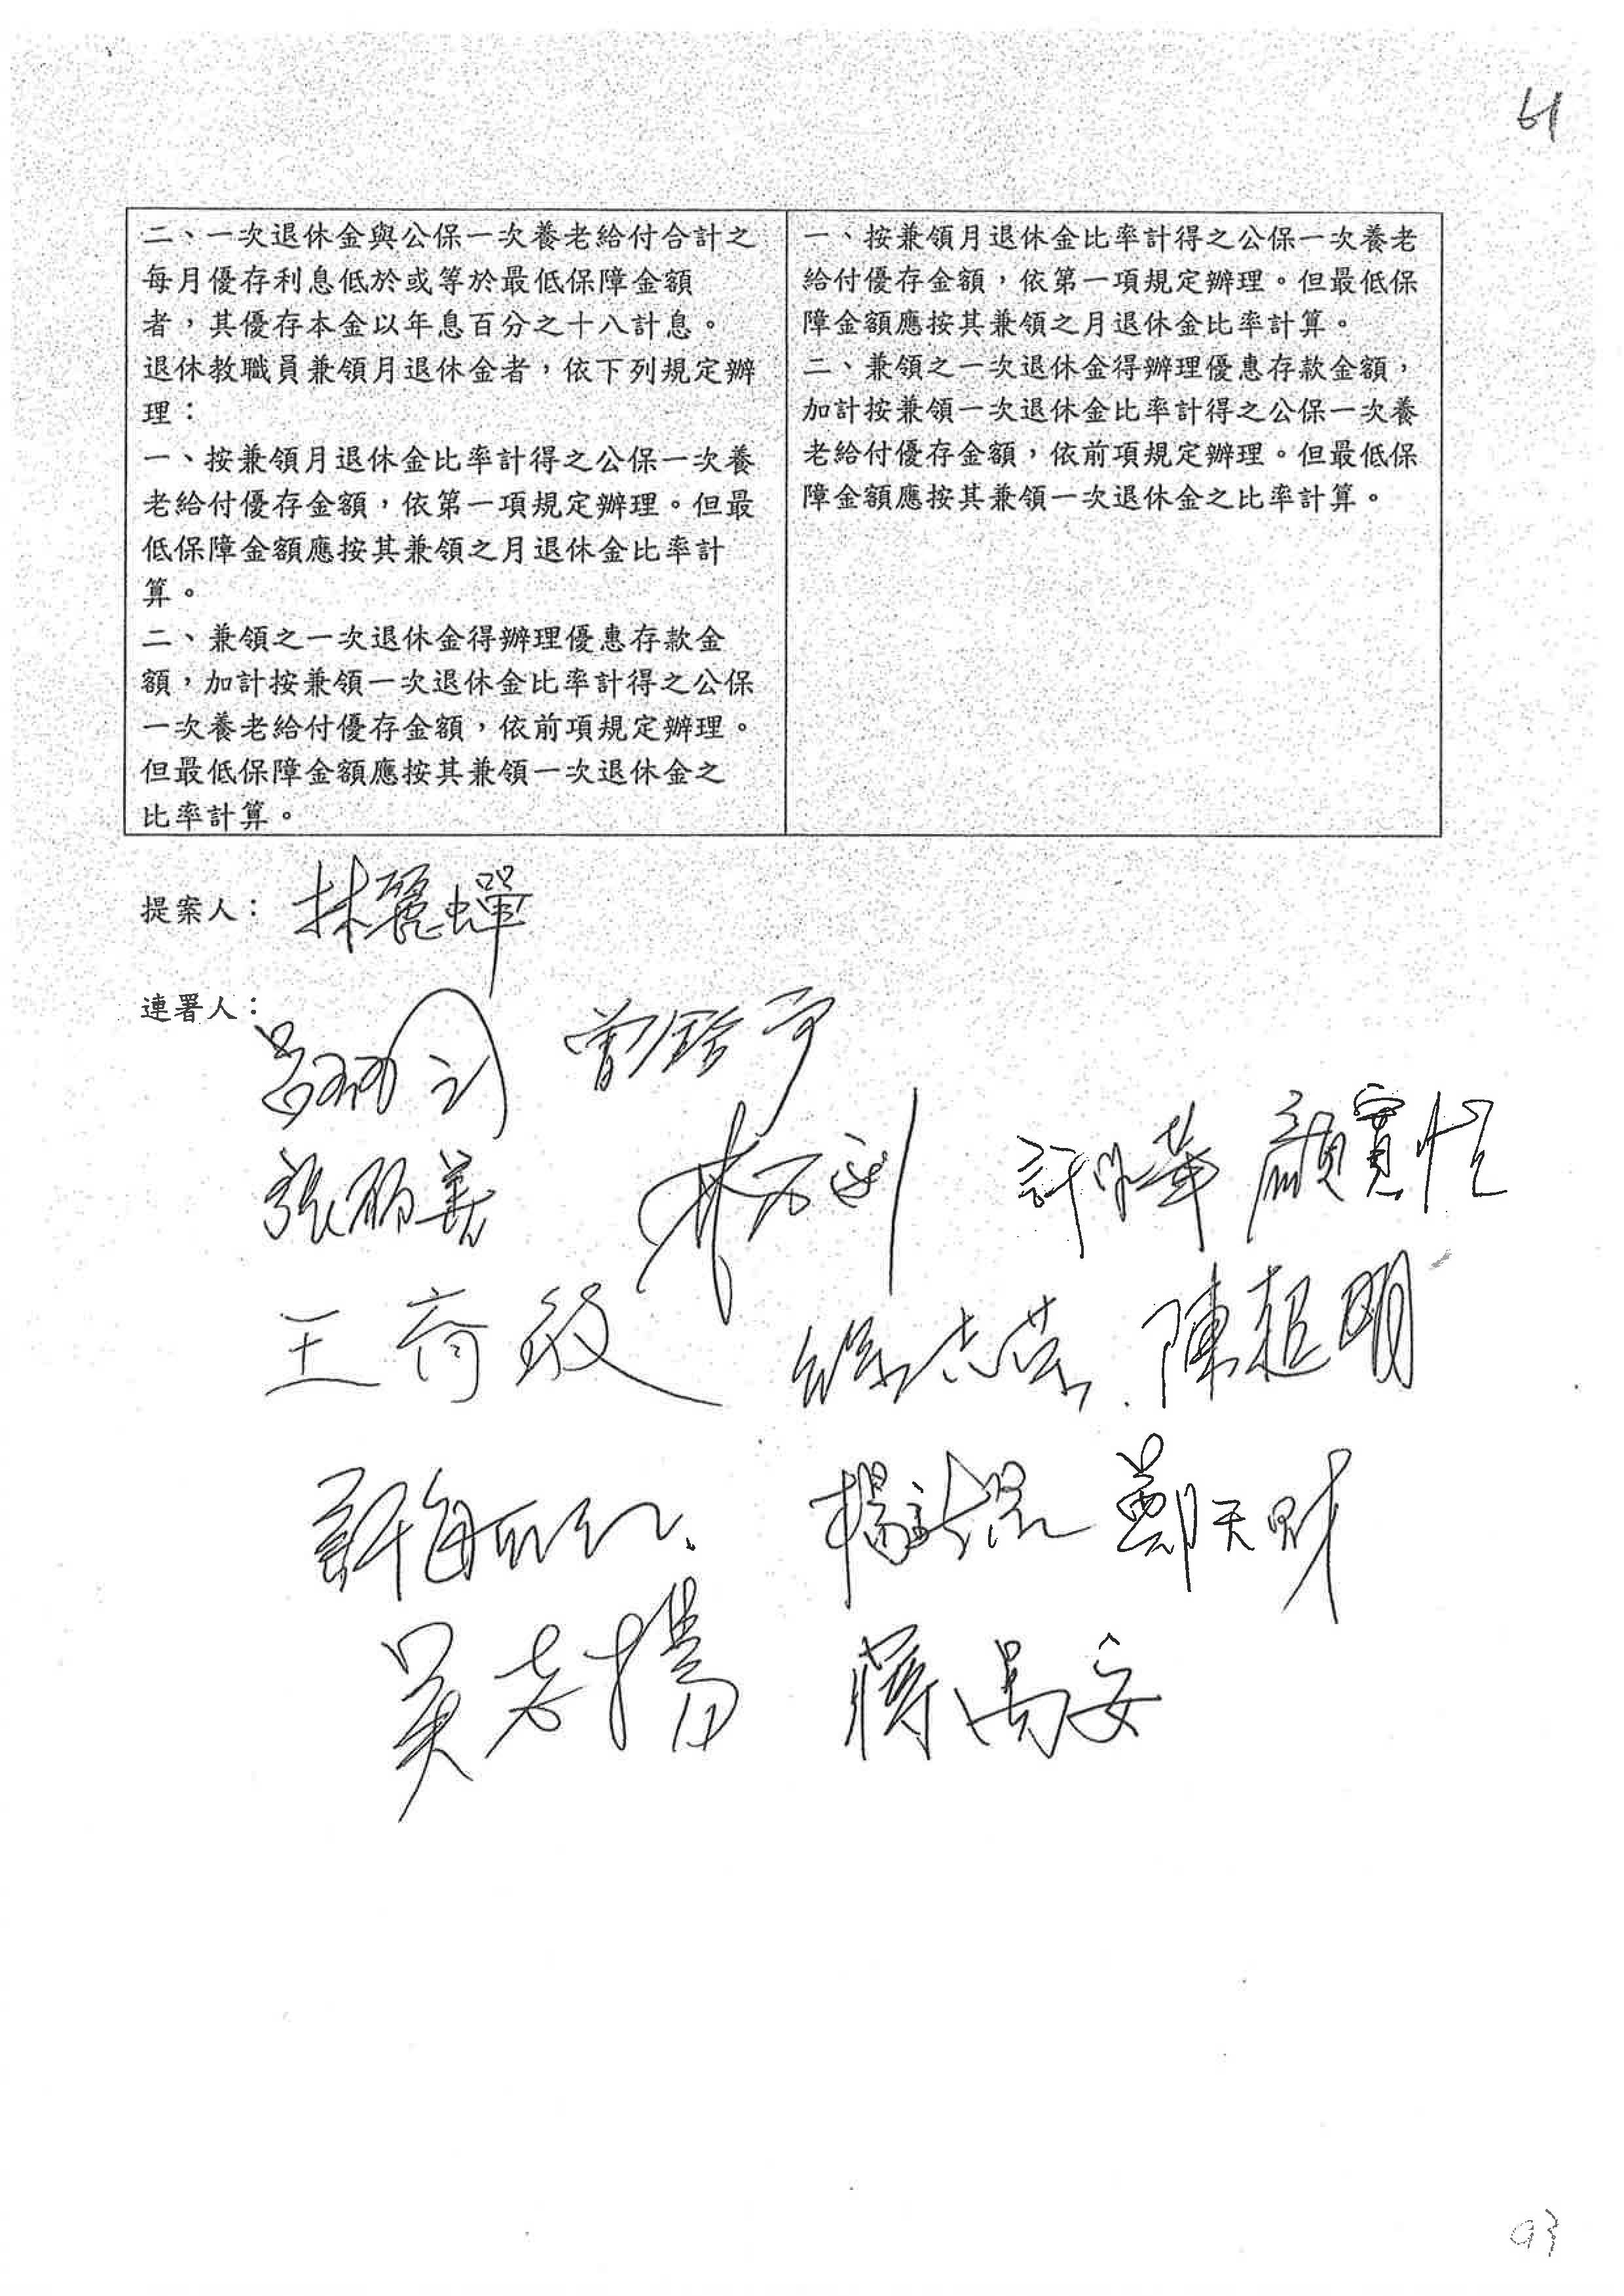 61
二、一次退休金與公保一次養老給付合計之
每月優存利息低於或等於最低保障金額
者，其優存本金以年息百分之十八計息。
退休教職員兼領月退休金者，依下列規定辦
理：
一、按兼領月退休金比率計得之公保一次養
老給付優存金額，依第一項規定辦理。但最
低保障金額應按其兼領之月退休金比率計
算。
二、兼領之一次退休金得辦理優惠存款金
額，加計按兼領一次退休金比率計得之公保
一次養老給付優存金額，依前項規定辦理。
但最低保障金額應按其兼領一次退休金之
比率計算。
一、按兼領月退休金比率計得之公保一次養老
給付優存金額，依第一項規定辦理。但最低保
障金額應按其兼領之月退休金比率計算。
二、兼領之一次退休金得辦理優惠存款金額，
加計按兼領一次退休金比率計得之公保一次養
老給付優存金額，依前項規定辦理。但最低保
障金額應按其兼領一次退休金之比率計算。
提案人：林麗蟬
連署人：
張麗善 顏寬恒
徐志榮 陳超明
鄭天財
吳志揚 蔣萬安
93